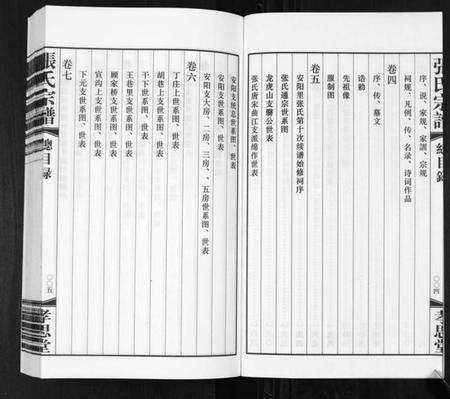 張氏宗譜
總目錄
〇〇四
孝思堂
序、说、家规、家訓、宗规
祠规、凡例、传、名录、诗词作品
卷四
序、传、墓文
诰勅
先祖像
服制图
卷五
安阳里张氏第十次续谱始修祠序
张氏通宗世系图
龙虎山支嗣公世表
张氏唐宋曲江支派绵作世表
安阳支世系图、世表
安阳支统总世系图、世表
安阳支大房、二房、三房、、五房世系图、世表
卷六
丁庄上世系图、世表
胡巷上世系图、世表
干下世系图、世表
王巷里世系图、世表
顾家桥支世系图、世表
宣沟上世系图、世表
下元支世系图、世表
卷七
張氏宗譜
總目錄
〇〇五
孝思堂